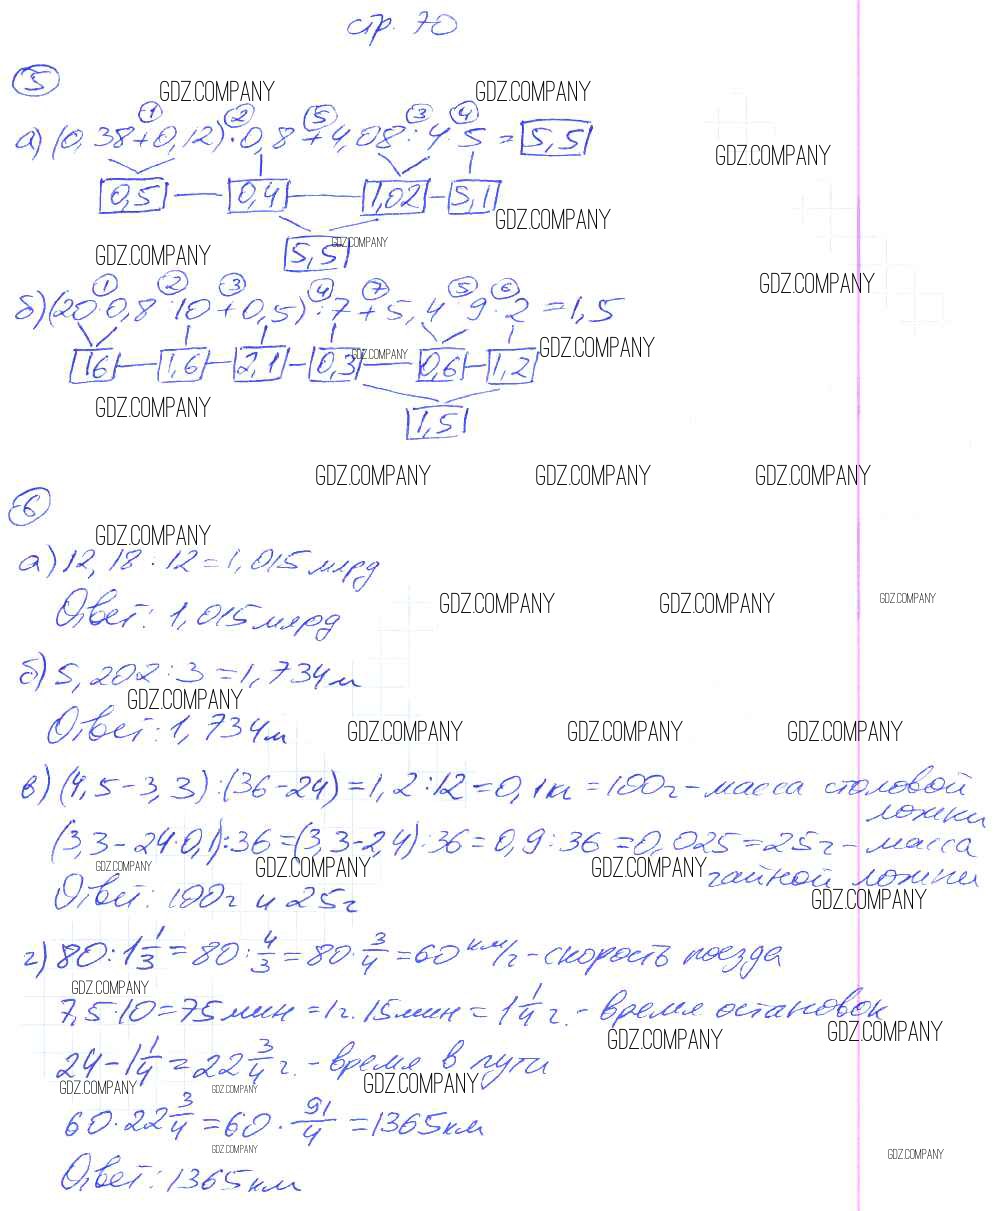 стр. 70
5
GDZ.COMPANY GDZ.COMPANY
1 2 5 3 4
а) (0,38+0,12)·0,8+4,08:4·5=5,5
GDZ.COMPANY
0,5 0,4 1,02 5,1
GDZ.COMPANY
5,5
GDZ.COMPANY
GDZ.COMPANY
GDZ.COMPANY
1 2 3 4 7 5 6
б) (20·0,8:10+0,5):7+5,4:9·2=1,5
GDZ.COMPANY
GDZ.COMPANY
16 1,6 2,1 0,3 0,6 1,2
GDZ.COMPANY
1,5
GDZ.COMPANY GDZ.COMPANY GDZ.COMPANY
6
GDZ.COMPANY
а) 12,18:12=1,015 млрд
GDZ.COMPANY GDZ.COMPANY GDZ.COMPANY
Ответ: 1,015 млрд
б) 5,202:3=1,734 м
GDZ.COMPANY
Ответ: 1,734 м
GDZ.COMPANY GDZ.COMPANY GDZ.COMPANY
в) (4,5-3,3):(36-24)=1,2:12=0,1 кг=100 г-масса столовой
ложки
(3,3-24·0,1):36=(3,3-2,4):36=0,9:36=0,025=25 г-масса
чайной ложки
GDZ.COMPANY GDZ.COMPANY GDZ.COMPANY
Ответ: 100 г и 25 г
GDZ.COMPANY
г) 80:1 1/3=80:4/3=80·3/4=60 км/ч-скорость поезда
GDZ.COMPANY
7,5·10=75 мин=1 ч. 15 мин=1 1/4 ч.-время остановок
GDZ.COMPANY GDZ.COMPANY
24-1 1/4=22 3/4 ч.-время в пути
GDZ.COMPANY GDZ.COMPANY GDZ.COMPANY
60·22 3/4=60·91/4=1365 км
GDZ.COMPANY GDZ.COMPANY
Ответ: 1365 км